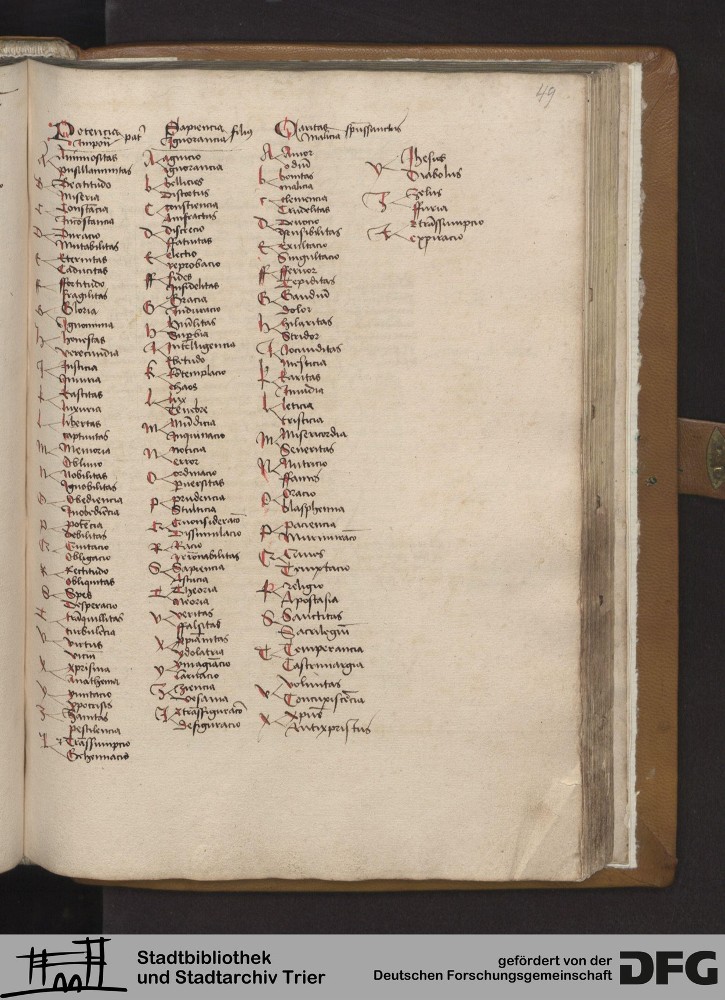 49
Potencia pat'
Impon
Animositas
pusillanimitas
Rectitudo
Miseria
Constancia
Inconstancia
Duracio
Mutabilitas
Eternitas
Caducitas
ffortitudo
fragilitas
Gloria
Ignominia
honestas
verecundia
Justicia
Iniuria
kastitas
luxuria
libertas
captiuitas
Memoria
Obliuio
Nobilitas
Ignobilitas
Obediencia
Inobediencia
potencia
debilitas
Quitacio
Obligacio
Rectitudo
obliquitas
Spes
Desperacio
tranquillitas
turbulencia
virtus
vicium
xprisma
Anathema
ypocrisis
Sanitas
pestilencia
Transsumpcio
Gehennacio
Sapiencia filius
Ignorancia
Agnicio
ignorancia
Consciencia
Anfractus
Discrecio
ffatuitas
Electio
reprobacio
ffides
Infidelitas
Gracia
Induracio
humilitas
Supbia
Intelligencia
Ktemplacio
chaos
lux
Tenebre
Mundicia
Inquinacio
noticia
error
ordinacio
puersitas
prudencia
Stulticia
Dissimulacio
Racio
irracionabilitas
Sapiencia
Astucia
Theoria
veritas
ffalsitas
xpianitas
ydolatria
ymaginacio
vesania
Transfiguracio
Defiguracio
Caritas spiritussanctus
malicia
Amor
odium
bonitas
malicia
clemencia
Crudelitas
Deuocio
Insensibilitas
Exultacio
Singultacio
ffervor
Tepiditas
Gaudium
dolor
hilaritas
Stridor
Jocunditas
mesticia
karitas
Inuidia
leticia
tristicia
Misericordia
Seueritas
Nutricio
ffames
Oracio
blasphemia
paciencia
Murmuracio
Temptacio
religio
Apostasia
Sanctitas
Sacrilegium
Temperancia
Castrimargia
voluntas
Concupiscencia
xpus
Antixpristus
Ihesus
Diabolus
Zelus
ffuria
transsumpcio
expiracio
Stadtbibliothek
und Stadtarchiv Trier
gefördert von der
Deutschen Forschungsgemeinschaft
DFG